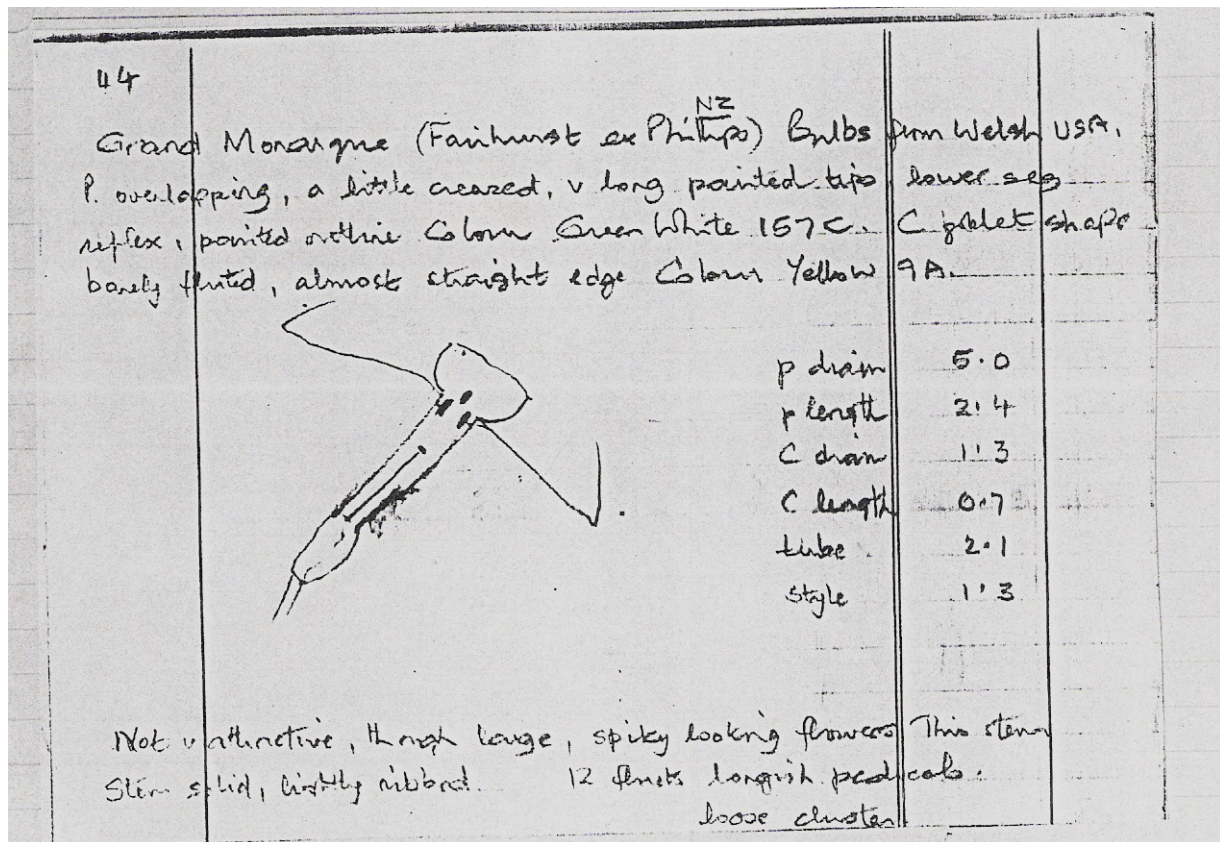 44
NZ
Grand Monarque (Fairhurst ex Phillips) Bulbs from Welsh USA.
P. overlapping, a little creazed, v long pointed tips, lower seg
reflex, pointed outline Colour Green White 157C. C goblet shape
barely fluted, almost straight edge Colour Yellow 9A.
p diam 5.0
p length 2.4
C diam 1.3
C length 0.7
tube 2.1
style 1.3
Not v attractive, though large, spiky looking flowers This stem
Stem solid, lightly ribbed. 12 florets longish pedicals.
loose cluster